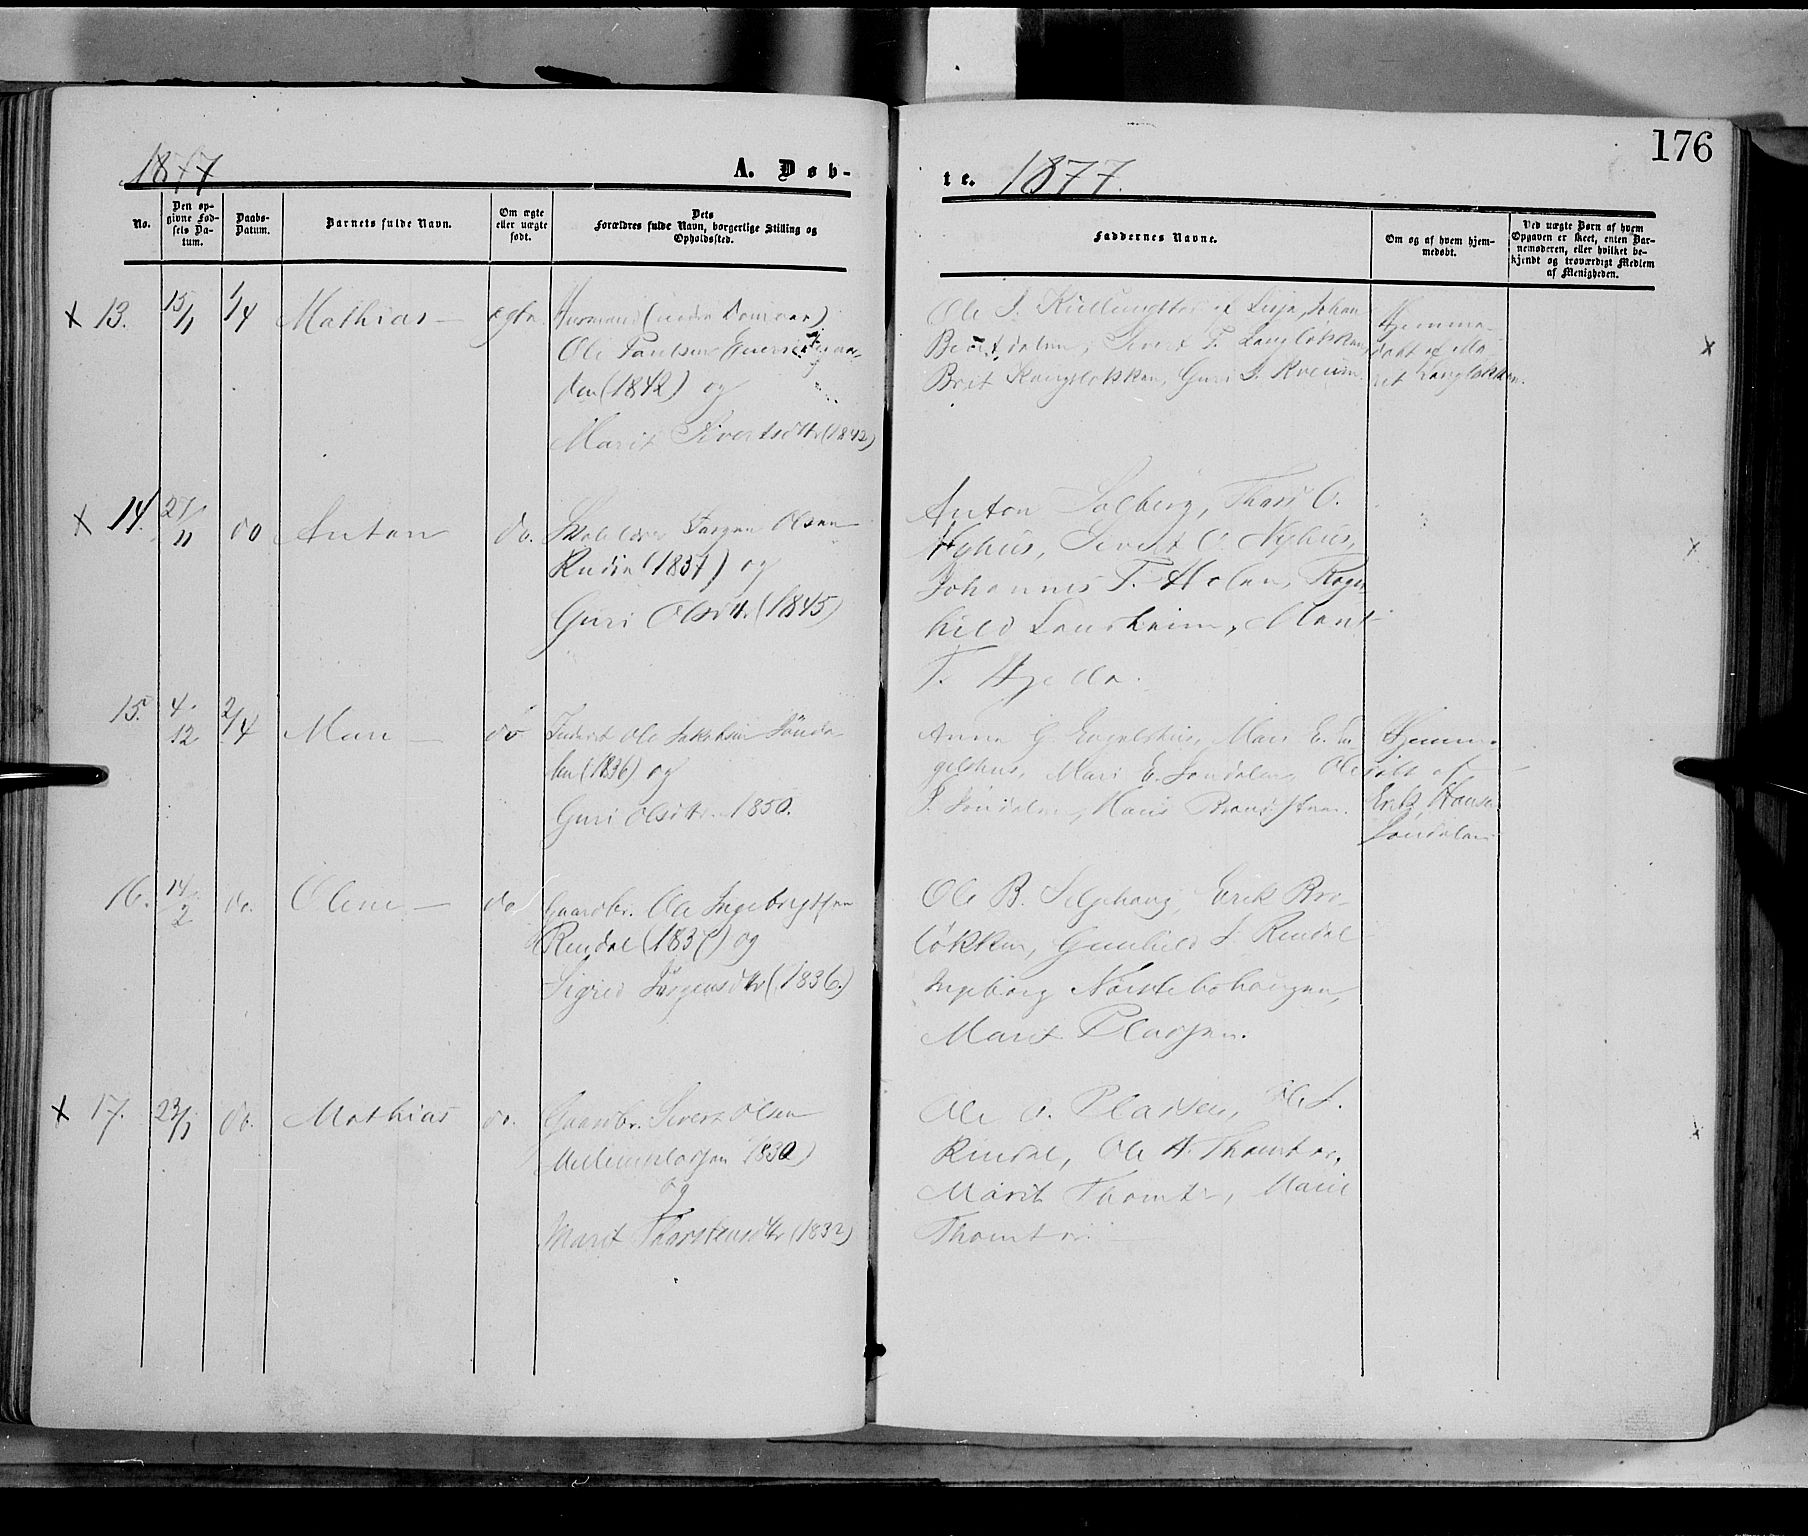 176
1877
A. Døb-
te. 1877.
No.
Den op-
givne Fød-
sels Da-
tum.
Daabs-
Datum.
Barnets fulde Navn.
Om ægte
eller uægte
født.
Dets
Forældres fulde Navn, borgerlige Stilling og
Opholdssted.
Faddernes Navne.
Om og af hvem hjem-
medøbt.
Ved uægte Børn af hvem
Opgaven er skeet, enten Bar-
nemoderen, eller hvilket be-
kjendt og troværdigt Medlem
af Menigheden.
x 13. 15/1 1/4 Mathias – ægte
Ole Paulsen
den (1842) og
Marit Sivertsdtr (1842)
Ole J. af Lesja, Johan
Sivert T. Langløkken,
Brit Langløkken, Guri
Hjemme-
døbt af Ma-
rit Langløkken.
x
x 14. do Anton do.
Jørgen Olsen
(1837) og
Guri Olsdtr. (1845)
Anton Solberg, Thord O.
Nyhus, Sivert O. Nyhus,
Johannes T. Holen, Ragn-
hild Marit
T. Hjelle.
x
15. 4/12 2/4 Mari – do
Inderst Ole Jakobsen Jøndа-
len (1836) og
Guri Olsdtr. 1850.
Anne G. Engelshus, Mari E. En-
gelshus, Mari E. Jøndalen, Ole
J. Jøndalen, Hans
Hjemme-
døbt af
Erik Hansen
Jøndalen
16. 14/2 do. Oline – do
Gaardbr. Ole Ingebrigtsen
Rindal (1837) og
Sigrid Jørgensdtr (1836.)
Ole B. Selsjhaug, Erik Bro-
løkken, Gunhild J. Rindal
Ingeborg Nørstebøhaugen,
Marit Pladsen.
x 17. 23/1 do. Mathias do.
Gaardbr. Sivert Olsen
Mellempladsen 1830)
og
Marit Thorstensdtr (1832)
Ole O. Pladsen, Ole J.
Rindal, Ole A. Thomter,
Marit Thomter, Marie
Thomter.
x